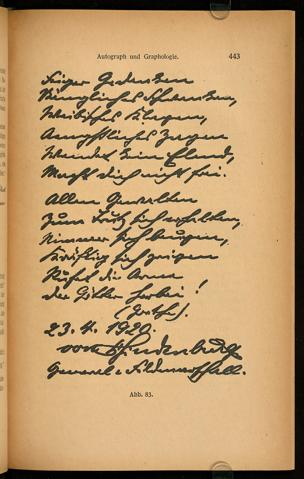 Autograph und Graphologie. 443
Feiger Gedanken
Bängliches Schwanken,
Weibisches Klagen,
Aengstliches Zagen
Wendet kein Elend,
Macht dich nicht frei.
Allen Gewalten
Zum Trutz sich erhalten,
Nimmer sich beugen,
Kräftig sich zeigen
Rufet die Arme
der Götter herbei!
(Goethe).
23. 4. 1920.
von Hindenburg
General-Feldmarschall.
Abb. 83.